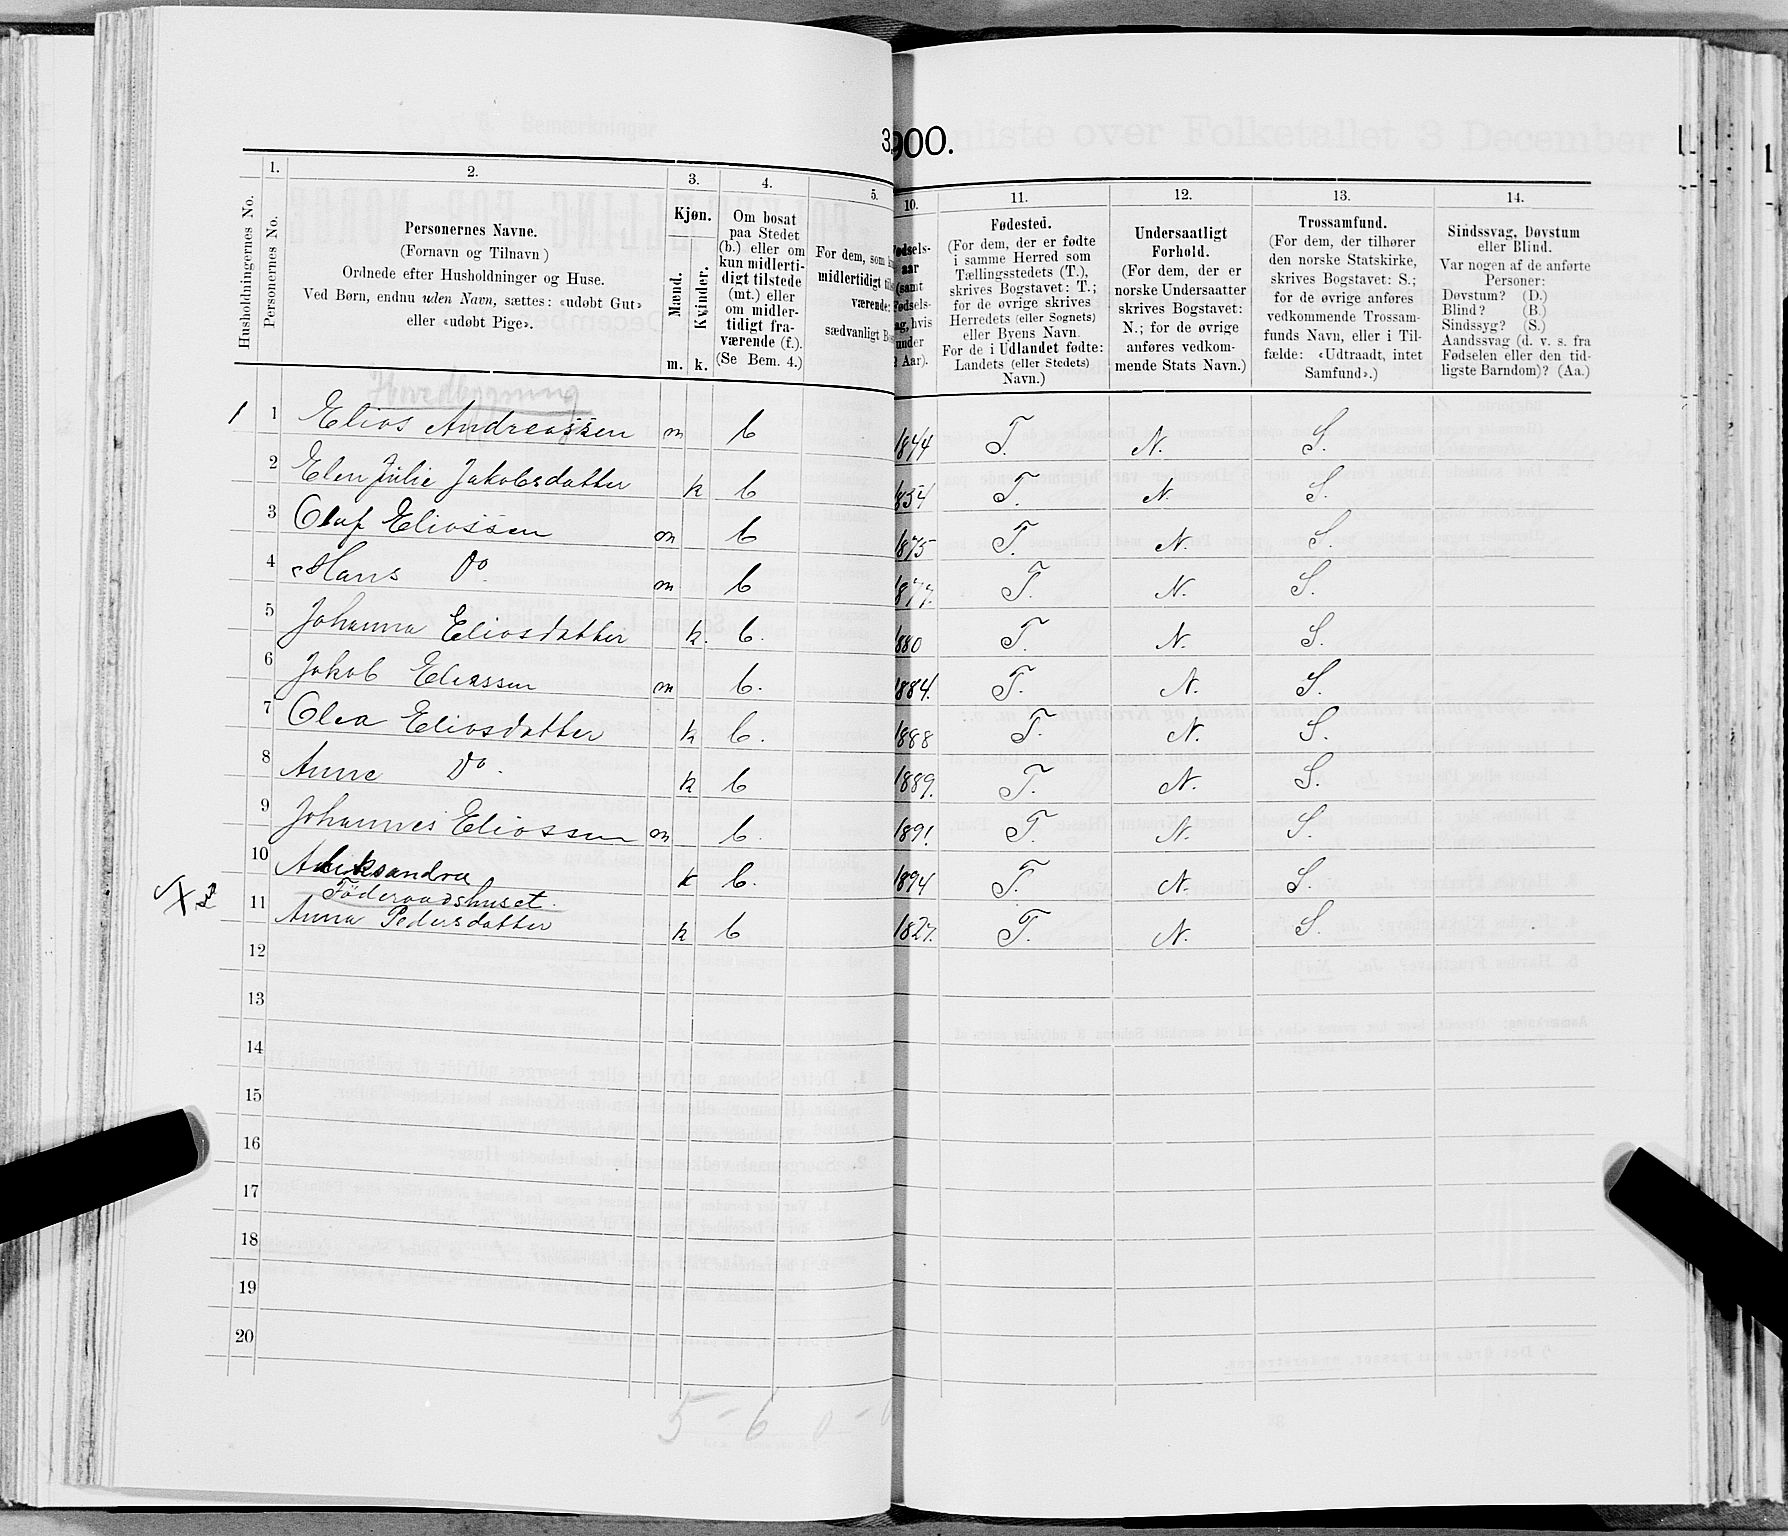 3.
900.
1.
2.
3.
4.
5.
10.
11.
12.
13.
14.
Husholdningernes No.
Personernes No.
Personernes Navne.
(Fornavn og Tilnavn)
Ordnede efter Husholdninger og Huse.
Ved Børn, endnu uden Navn, sættes: «udøbt Gut»
eller «udøbt Pige».
Kjøn.
Mænd.
Kvinder.
m. k.
Om bosat
paa Stedet
(b.) eller om
kun midlerti-
digt tilstede
(mt.) eller
om midler-
tidigt fra-
værende (f.).
(Se Bem. 4.)
For dem, som
midlertidigt
værende:
sædvanligt
Fødsels-
aar
(samt
Fødsels-
dag, hvis
under
2 Aar).
Fødested.
(For dem, der er fødte
i samme Herred som
Tællingsstedets (T.),
skrives Bogstavet: T.;
for de øvrige skrives
Herredets (eller Sognets)
eller Byens Navn.
For de i Udlandet fødte:
Landets (eller Stedets)
Navn.)
Undersaatligt
Forhold.
(For dem, der er
norske Undersaatter
skrives Bogstavet:
N.; for de øvrige
anføres vedkom-
mende Stats Navn.)
Trossamfund.
(For dem, der tilhører
den norske Statskirke,
skrives Bogstavet: S.;
for de øvrige anføres
vedkommende Trossam-
funds Navn, eller i Til-
fælde: «Udtraadt, intet
Samfund».)
Sindssvag, Døvstum
eller Blind.
Var nogen af de anførte
Personer:
Døvstum? (D.)
Blind? (B.)
Sindssyg? (S.)
Aandssvag (d. v. s. fra
Fødselen eller den tid-
ligste Barndom)? (Aa.)
Hovedbygning
1 1 Elias Andreassen m b 1844 T. N. S.
2 Elen Julie Jakobsdatter k b 1854 T. N. S.
3 Oluf Eliassen m b 1875 T. N. S.
4 Hans Do m b 1877. T. N. S.
5 Johanna Eliasdatter k. b. 1880 T. N. S.
6 Jakob Eliassen m b. 1884. T. N. S.
7 Olea Eliasdatter k b. 1888 T. N. S.
8 Anne Do. k b 1889. T. N. S.
9 Johannes Eliassen m b. 1891 T. N. S.
10 Aleksandra k b. 1894 T. N. S.
Föderaadshuset.
X 2 11 Anna Pedersdatter k b 1827. T. N. S.
12
13
14
15
16
17
18
19
20
5 - 6 0 - 0